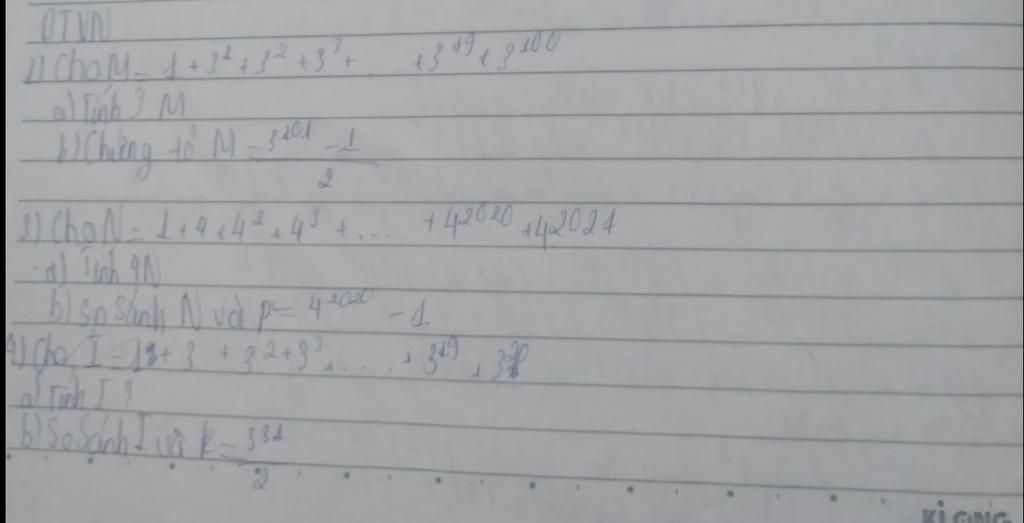 BTVN
1) Cho M = 1 + 3^1 + 3^2 + 3^3 + ... + 3^99 + 3^100
a) Tính 3 M
b) Chứng tỏ M = \frac{3^101 - 1}{2}
3) Cho N = 1 + 4 + 4^2 + 4^3 + .... + 4^2020 + 4^2021
a) Tính 4N
b) So sánh N và P = 4^2020 - 1
4) Cho I = 1 + 3 + 3^2 + 3^3 + ..... + 3^19 + 3^20
a) Tính I ?
b) So Sánh I và K = \frac{3^31}{2}
KLONG